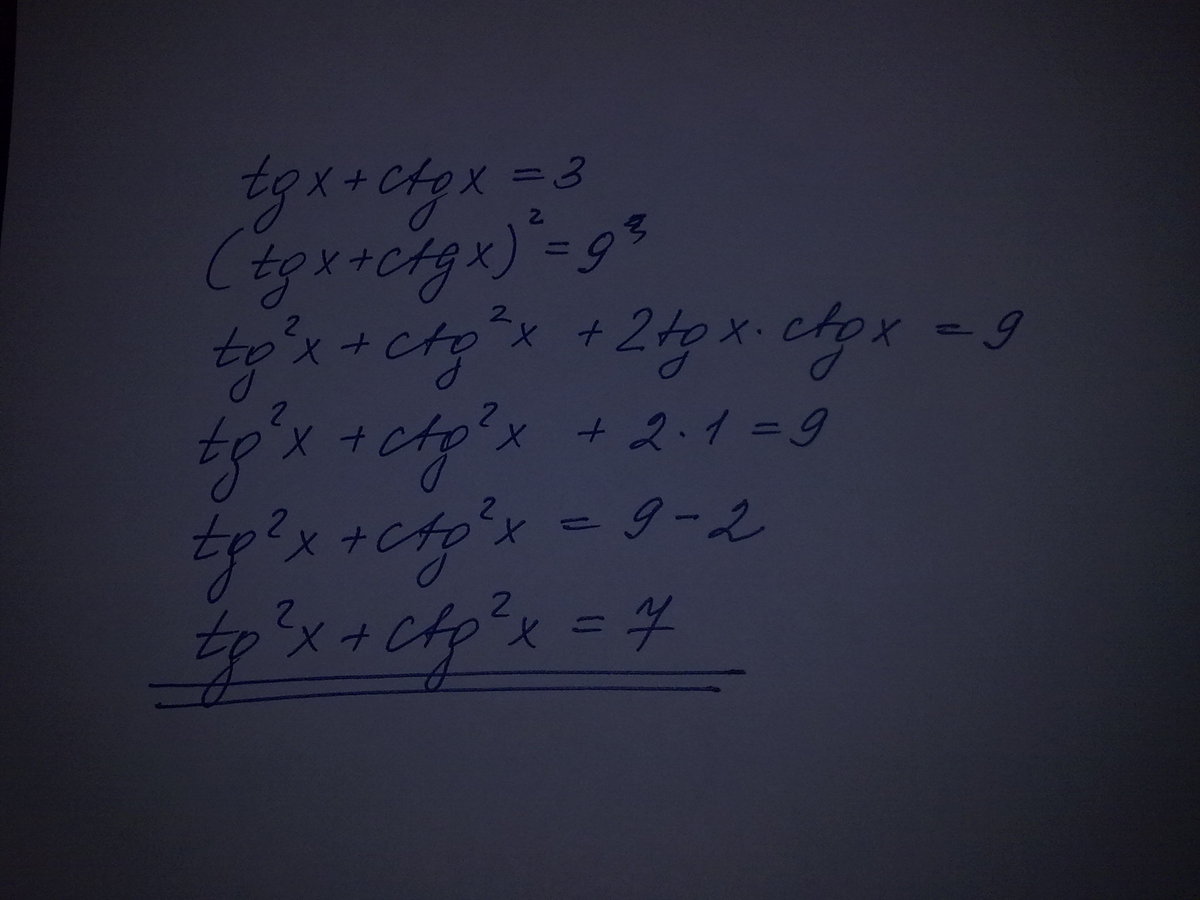 tgx + ctgx = 3
(tgx + ctgx)² = 9
tg²x + ctg²x + 2tgx · ctgx = 9
tg²x + ctg²x + 2 · 1 = 9
tg²x + ctg²x = 9 - 2
tg²x + ctg²x = 7